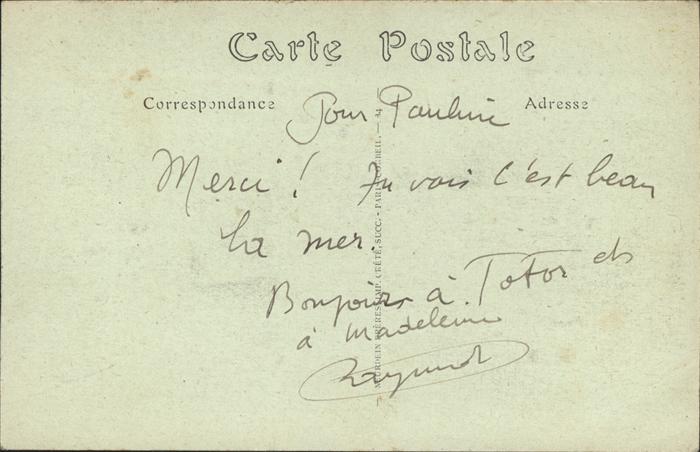 Carte Postale
Correspondance
Adresse
Pour Pauline
Merci ! Tu vois c'est beau
la mer.
Bonjour à Totor et
à Madeleine
Raymond